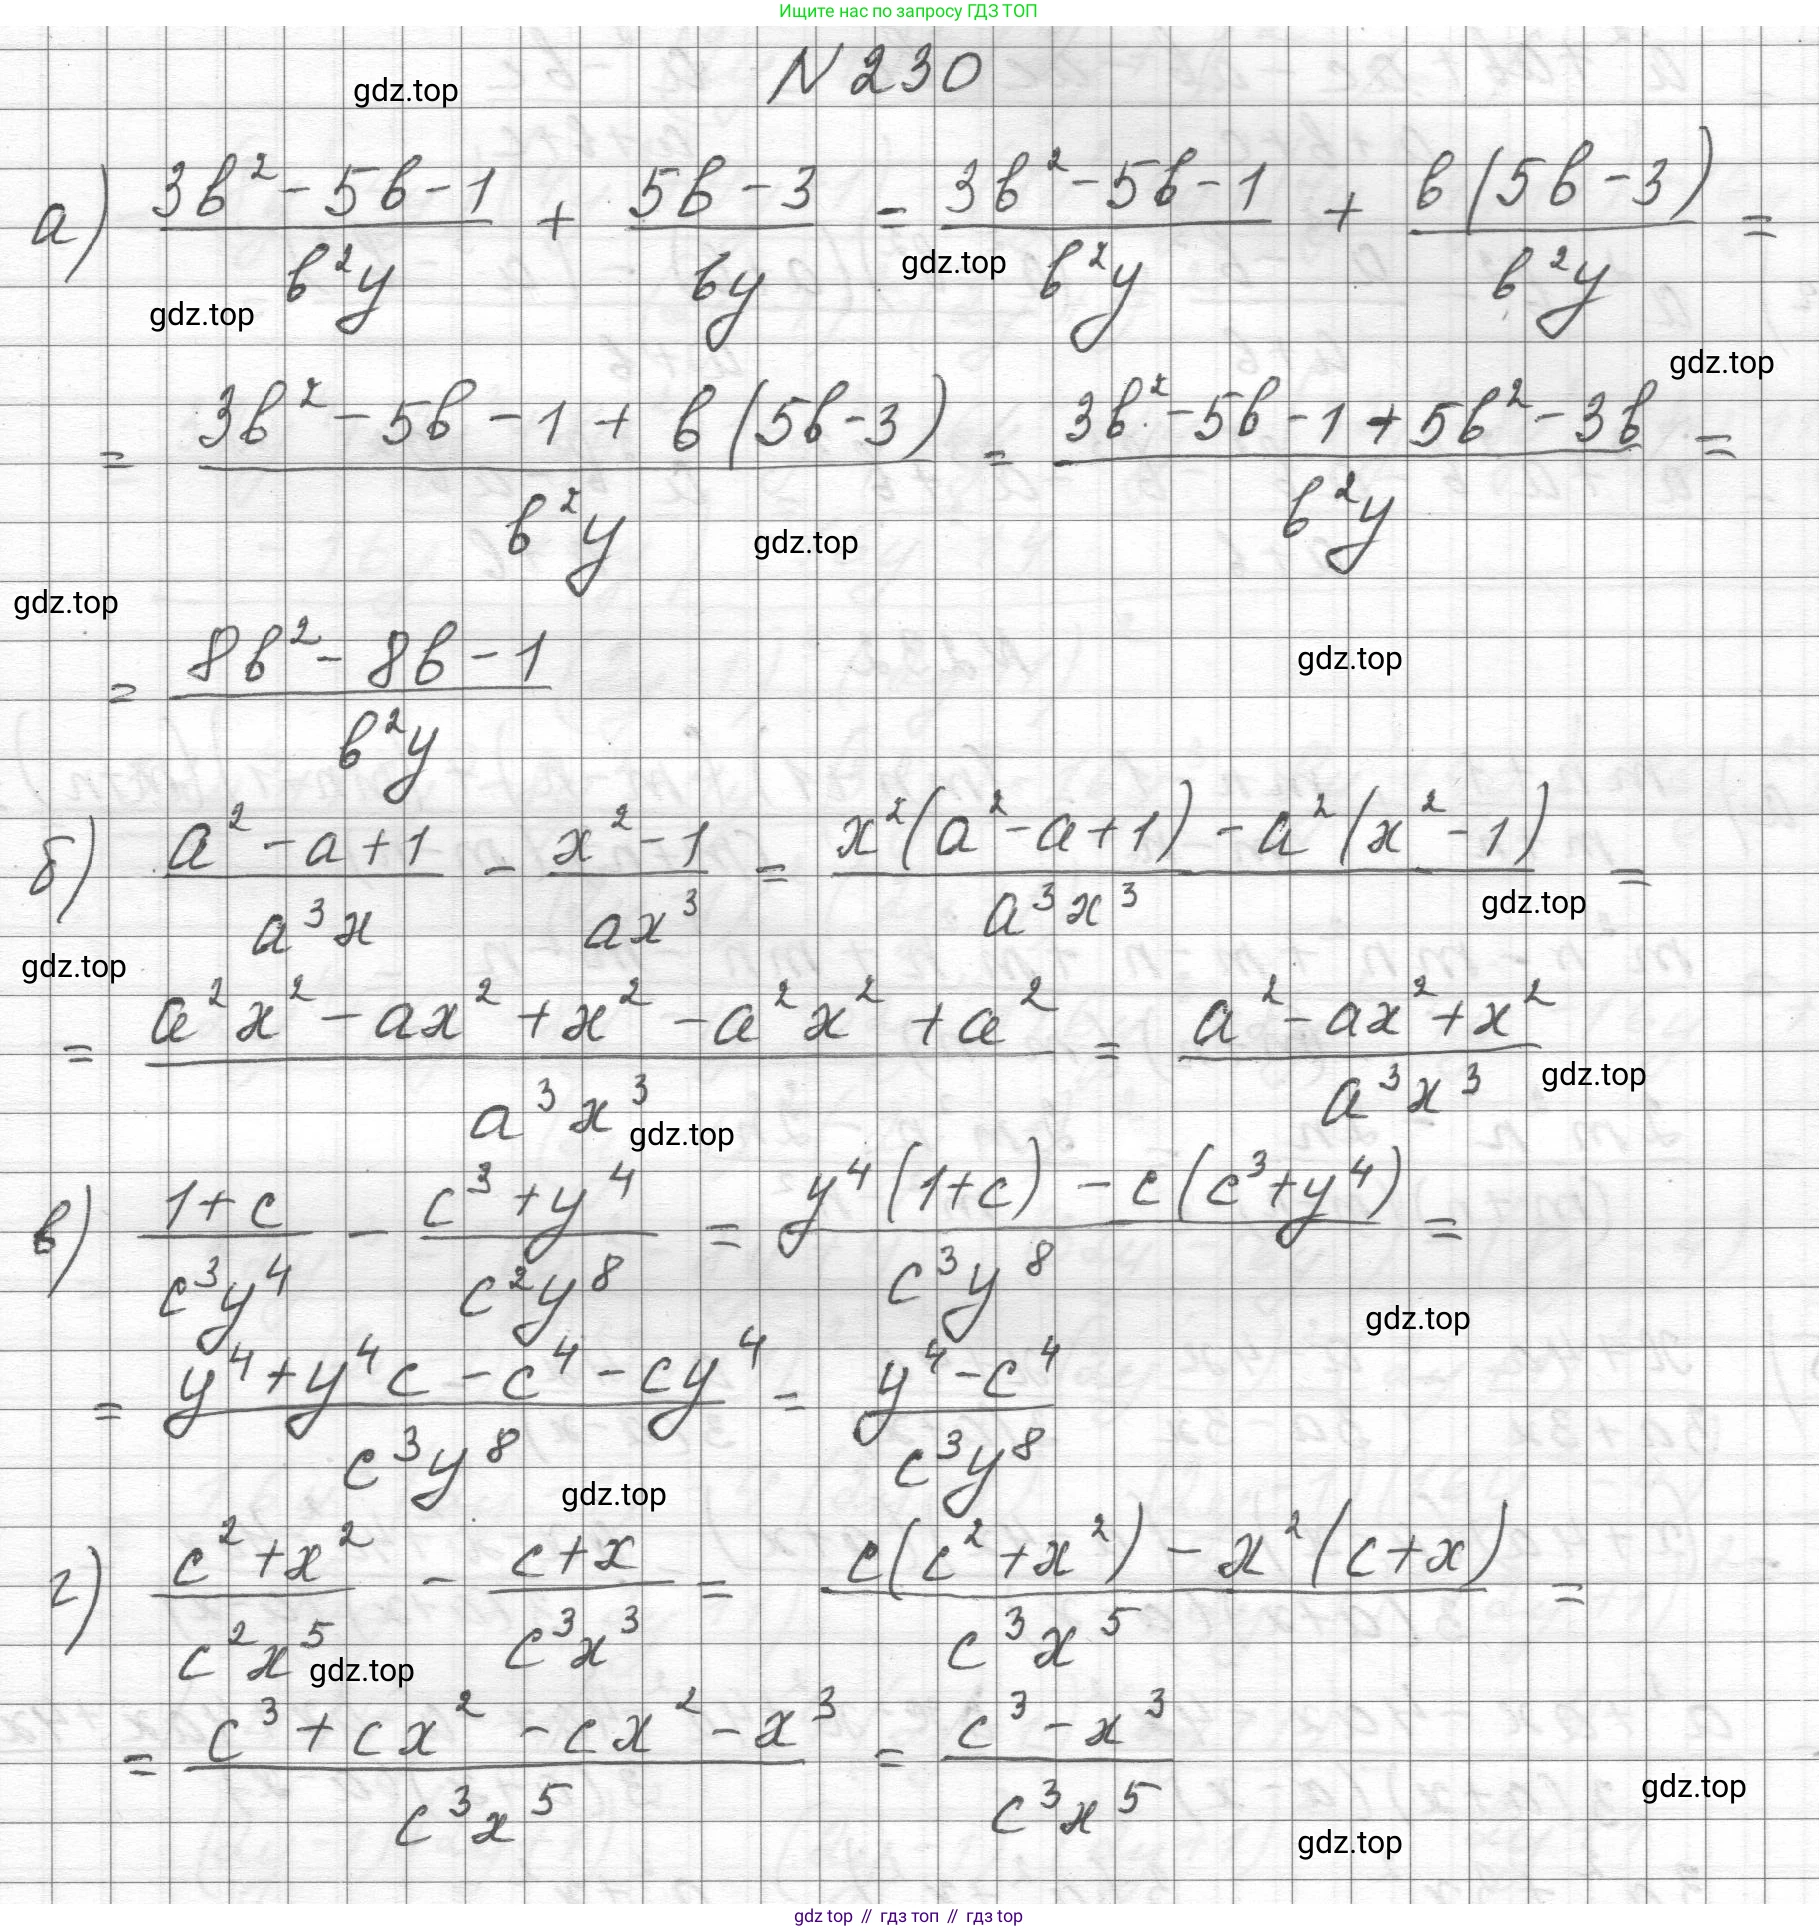 Ищите нас по запросу ГДЗ ТОП
N 230
gdz.top
а) (3b² - 5b - 1)/(b²y) + (5b - 3)/(by) = (3b² - 5b - 1)/(b²y) + b(5b - 3)/(b²y) =
gdz.top
gdz.top
gdz.top
= (3b² - 5b - 1 + b(5b - 3))/(b²y) = (3b² - 5b - 1 + 5b² - 3b)/(b²y) =
gdz.top
gdz.top
= (8b² - 8b - 1)/(b²y)
gdz.top
б) (a² - a + 1)/(a³x) - (x² - 1)/(ax³) = (x²(a² - a + 1) - a²(x² - 1))/(a³x³) =
gdz.top
gdz.top
= (a²x² - ax² + x² - a²x² + a²)/(a³x³) = (a² - ax² + x²)/(a³x³)
gdz.top
gdz.top
в) (1 + c)/(c³y⁴) - (c³ + y⁴)/(c²y⁸) = (y⁴(1 + c) - c(c³ + y⁴))/(c³y⁸) =
gdz.top
= (y⁴ + y⁴c - c⁴ - cy⁴)/(c³y⁸) = (y⁴ - c⁴)/(c³y⁸)
gdz.top
г) (c² + x²)/(c²x⁵) - (c + x)/(c³x³) = (c(c² + x²) - x²(c + x))/(c³x⁵) =
gdz.top
= (c³ + cx² - cx² - x³)/(c³x⁵) = (c³ - x³)/(c³x⁵)
gdz.top
gdz.top
gdz top // гдз топ // гдз top